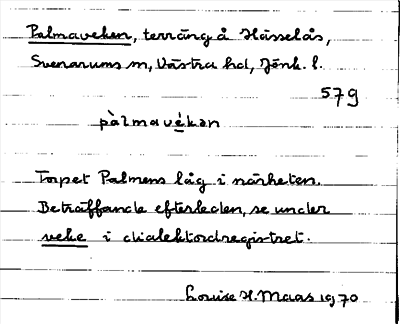 Palmaveken, terräng å Hässelås,
Svenarums sn, Västra hd, Jönk. l.
579
pàlmavékan
Torpet Palmens låg i närheten.
Beträffande efterleden, se under
veke i dialektordregistret.
Louise H. Maas 1970